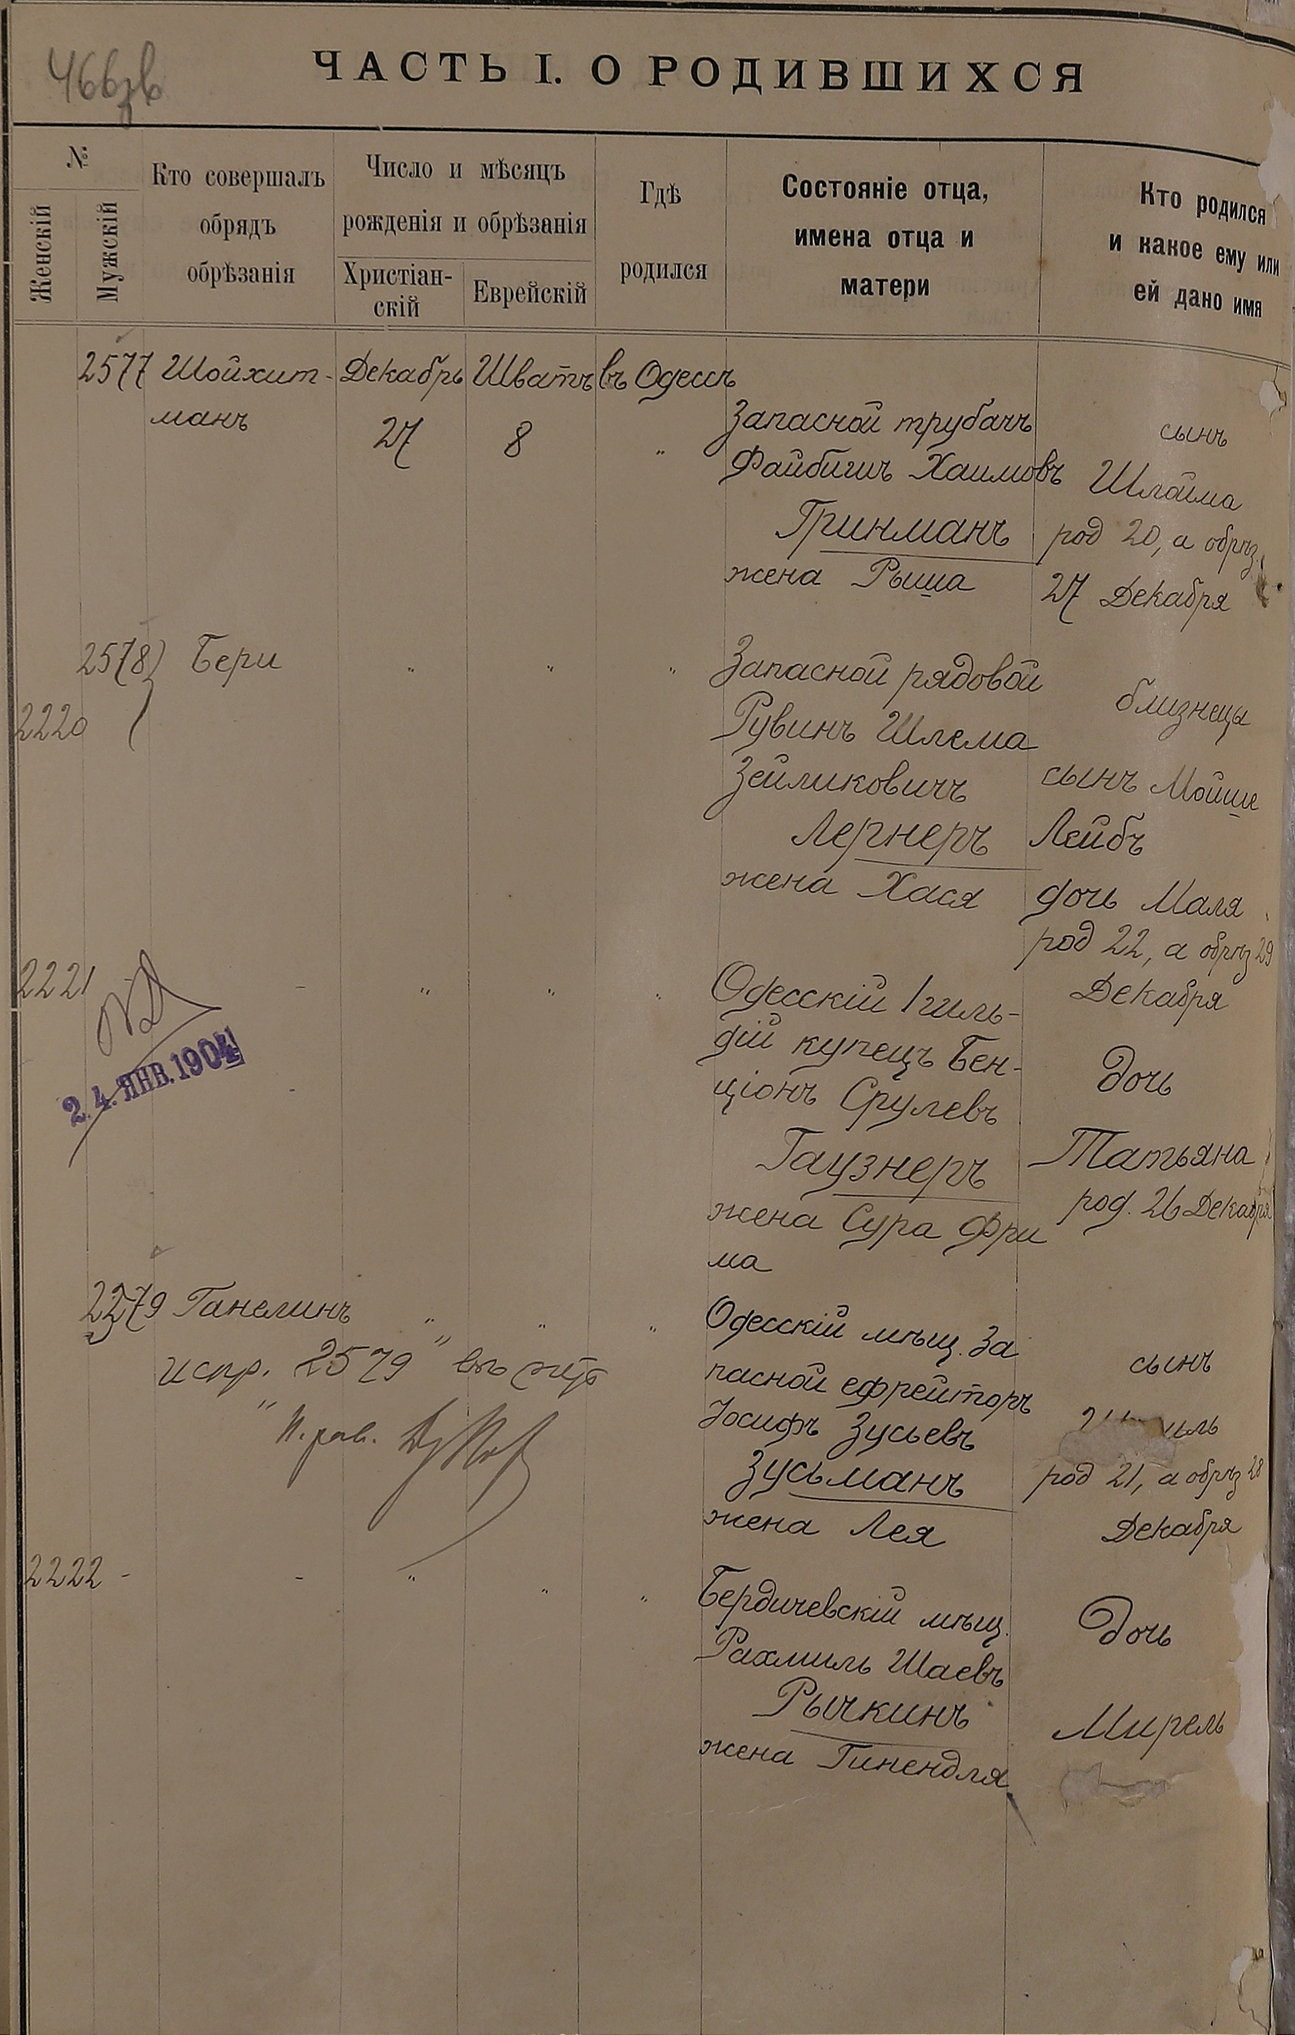 466зв
ЧАСТЬ I. О РОДИВШИХСЯ
№
Женскій
Мужскій
Кто совершалъ
обрядъ
обрѣзанія
Число и мѣсяцъ
рожденія и обрѣзанія
Христіан-
скій
Еврейскій
Гдѣ
родился
Состояніе отца,
имена отца и
матери
Кто родился
и какое ему или
ей дано имя
2577 Шойхит- Декабрь Шватъ въ Одессѣ
манъ 27 8 "
Запасной трубачъ
Файбишъ Хаимовъ
Гринманъ
жена Рыша
сынъ
Шлойма
род 20, а обрѣз.
27 Декабря
2578 Бери " " "
2220
Запасной рядовой
Рувинъ Шлема
Зейликовичъ
Лернеръ
жена Хася
близнецы
сынъ Мойше
Лейбъ
дочь Маля
род 22, а обрѣз 29
Декабря
2221 - " " "
2.4.ЯНВ.1904
Одесскій 1 гиль-
дій купецъ Бен-
ціонъ Срулевъ
Гаузнеръ
жена Сура Фри
ма
Дочь
Татьяна
род. 26 Декабря
2579 Ганелинъ " " "
испр. 2579"
"П. рав.
Одесскій мѣщ. За
пасной ефрейторъ
Іосифъ Зусьевъ
Зусьманъ
жена Лея
сынъ
род 21, а обрѣз 28
Декабря
2222 - - " " "
Бердичевскій мѣщ.
Рахмиль Шаевъ
Рычкинъ
жена Гинендля
Дочь
Мирель